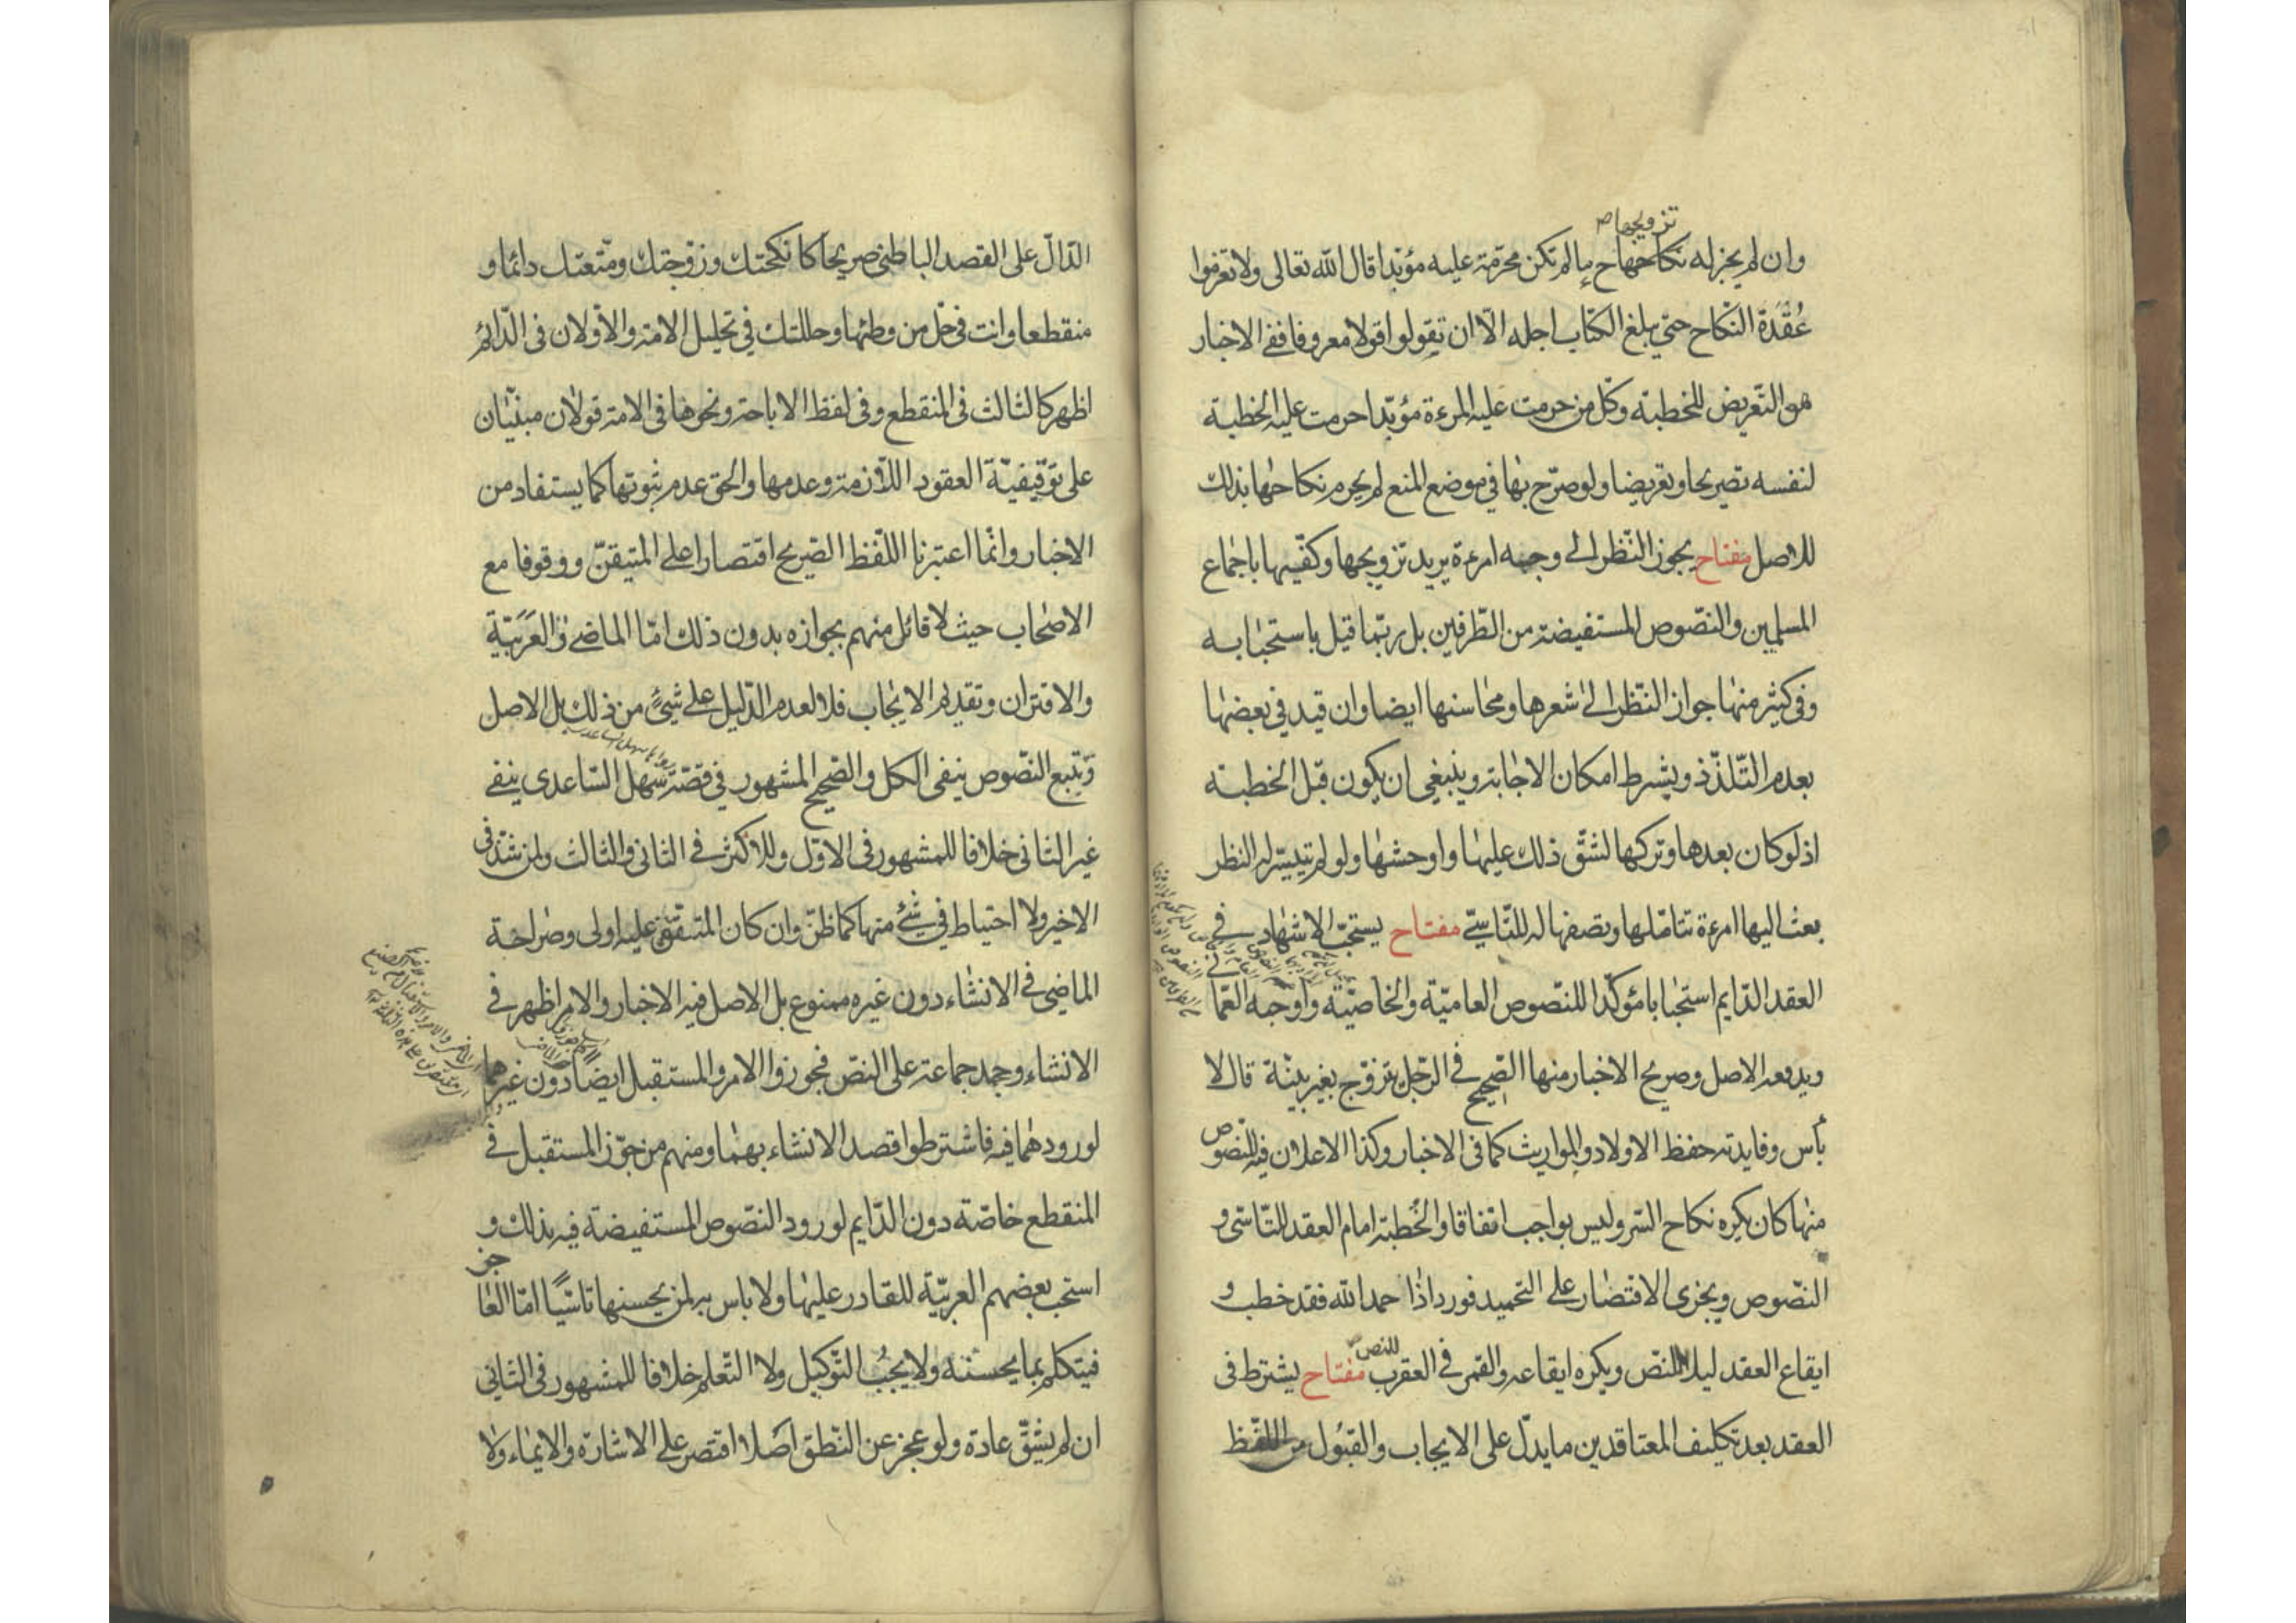 تزويجها ص
وان لم يجز له نكاحها ح ما لم تكن محرّمة عليه مؤبّدا قال الله تعالى ولا تعزموا
عُقْدَةَ النّكاح حتي يبلغ الكتاب اجله الّا ان تقولوا قولا معروفا ففي الاخبار
هو التّعريض للخطبة وكلّ من حرمت عليه المرءة مؤبّدا حرمت عليه الخطبة
لنفسه تصريحا وتعريضا ولو صرّح بها في موضع المنع لم يحرم نكاحها بذلك
للاصل مفتاح يجوز النّظر الى وجه امرءة يريد تزويجها وكفّيها باجماع
المسلمين والنّصوص المستفيضة من الطّرفين بل ربّما قيل باستحبابه
وفى كثير منها جواز النّظر الى شعرها ومحاسنها ايضا وان قيد في بعضها
بعدم التّلذّذ ويشرط امكان الاجابة وينبغي ان يكون قبل الخطبة
اذ لو كان بعدها وتركها لشقّ ذلك عليها واوحشها ولو لم يتيسّر له النظر
بعث اليها امرءة تتامّلها وتصفها له للتّاسّي مفتاح يستحبّ الاشهاد في
العقد الدّايم استحبابا مؤكّدا للنّصوص العاميّة والخاصّيّة واوجبه العمّاني
ويدفعه الاصل وصريح الاخبار منها الصّحيح في الرّجل يتزوّج بغير بيّنة قال لا
بأس وفايدته حفظ الاولاد والمواريث كما فى الاخبار وكذا الاعلان فيه للنّصوص
منها كان يكره نكاح السّر وليس بواجب اتفاقا والخُطبة امام العقد للتّاسّى و
النّصوص ويجزى الاقتصار على التحميد فورد اذا حمد الله فقد خطب و
ايقاع العقد ليلا للنّصّ ويكره ايقاعه والقمر في العقرب للنص مفتاح يشترط فى
العقد بعد تكليف المتعاقدين ما يدلّ على الايجاب والقبول من اللفظ
الدّالّ على القصد الباطني صريحا كانكحتك وزوّجتك ومتّعتك دائما و
منقطعا وانت في حلّ من وطئها وحللتك في تحليل الامة والاوّلان فى الدّائم
اظهر كالثالث في المنقطع وفى لفظ الاباحة ونحوها فى الامة قولان مبنيّان
على توقيفيّة العقود اللّازمة وعدمها والحق عدم ثبوتها كما يستفاد من
الاخبار وانّما اعتبرنا اللّفظ الصّريح اقتصارا على المتيقّن ووقوفا مع
الاصحاب حيث لا قائل منهم بجوازه بدون ذلك امّا الماضي والعَرَبيّة
والاقتران وتقديم الايجاب فلا لعدم الدّليل على شيئ من ذلك بل الاصل
وتتبع النّصوص ينفى الكل والصّحيح المشهور في قصّة سهل السّاعدى ينفي
غير الثانى خلافا للمشهور فى الاوّل وللاكثر في الثانى والثالث ولمن شذّ فى
الاخير ولا احتياط في شئ منها كما ظنّ وان كان المتّفق عليه اولى وصراحة
الماضي في الانشاء دون غيره ممنوع بل الاصل فيه الاخبار والامر اظهر في
الانشاء وجمد جماعة على النصّ فجوزوا الامر والمستقبل ايضا دون غيرهما
لورودهما فيه فاشترطوا قصد الانشاء بهما ومنهم من جوّز المستقبل في
المنقطع خاصّة دون الدّايم لورود النصّوص المستفيضة فيه بذلك و
استحب بعضهم العربيّة للقادر عليها ولا باس به لمن يحسنها تاسّيًا امّا العاجز
فيتكلم بما يحسنه ولا يجبُ التّوكيل ولا التّعلم خلافا للمشهور فى الثانى
ان لم يشقّ عادة ولو عجز عن النّطق اصلا اقتصر على الاشارة والايماء ولا